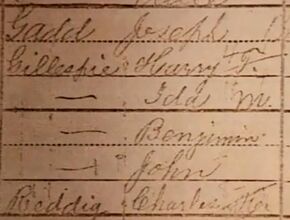 Gadd Joseph
Gillespie Harry F.
— Ida M.
— Benjimin
— John
Reddig Charles